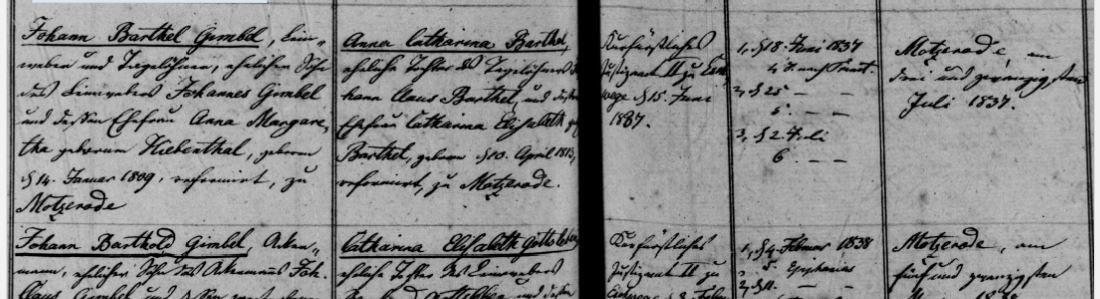 Johann Barthel Gimbel, Lein-
weber und Tagelöhner, ehelicher Sohn
des Leinwebers Johannes Gimbel
und dessen Ehefrau Anna Margare,
tha geborene Hiebenthal, geboren
d 14. Januar 1809, reformirt, zu
Motzerode
Anna Catharina Barthel,
eheliche Tochter des Tagelöhners Jo
hann Claus Barthel, und dessen
Ehefrau Catharina Elisabeth
Barthel, geboren d 10. April 1813,
reformirt, zu Motzerode.
Kurfürstliches
Justizamt II zu Esch
wege d 15. Juni
1837.
1, d 18. Juni 1837
4. nach Trinit.
2, d 25 — —
5. — —
3, d 2 Juli
6 — —
Motzerode, am
drei und zwanzigsten
Juli 1837.
Johann Barthold Gimbel, Acker-
mann, ehelicher Sohn des Ackermanns Joh.
Claus Gimbel und
Catharina Elisabeth
eheliche Tochter des Leinwebers
und dessen
Kurfürstliches
Justizamt II zu
1, d 4. Februar 1838
5. Epiphanias
2, d 11. —
Motzerode, am
fünf und zwanzigsten